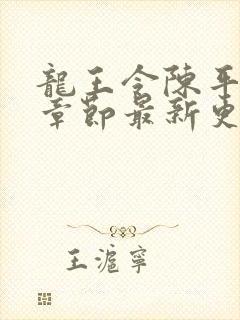 龍王令陳平
章節最新更
王滬寧